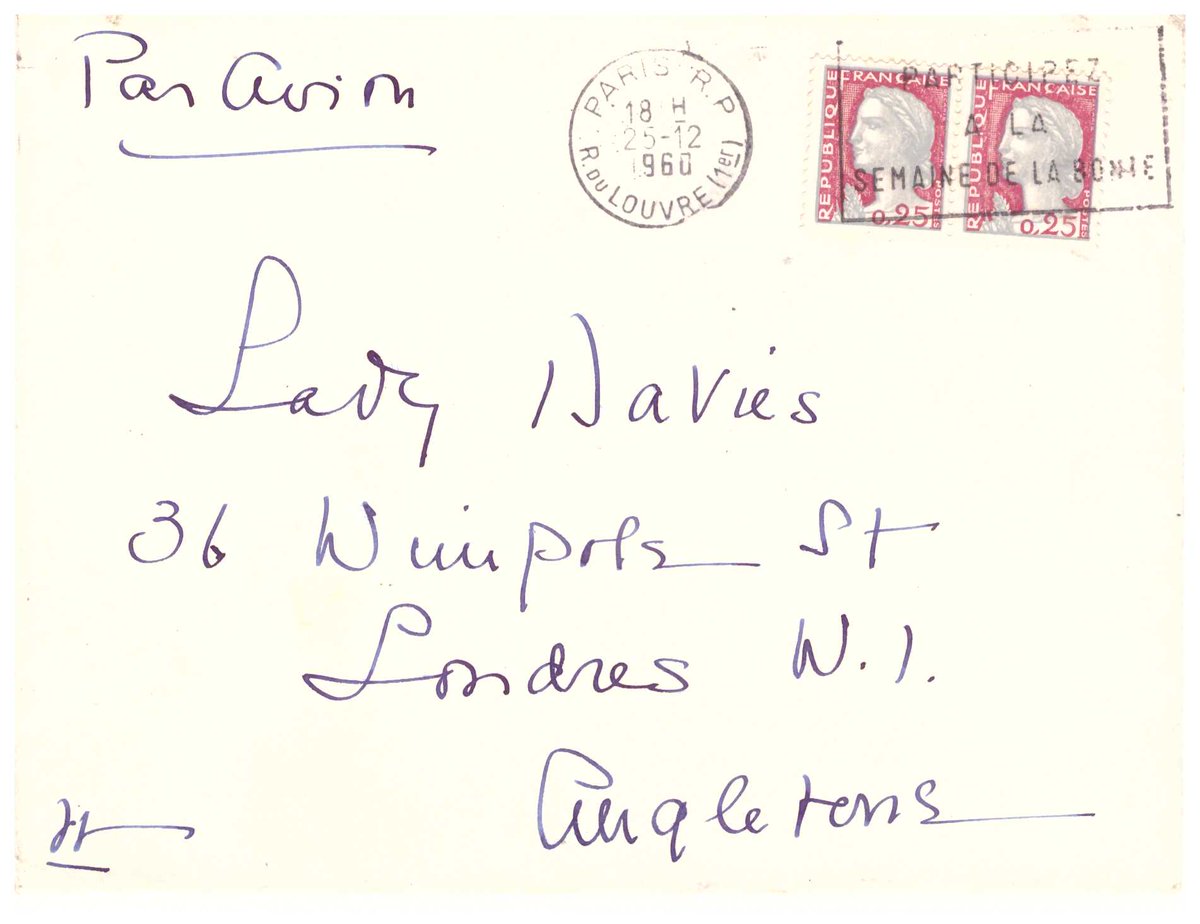 Par Avion
PARIS R.P.
18 H
25-12
1960
R. DU LOUVRE (1er)
PARTICIPEZ
A LA
SEMAINE DE LA BONTE
REPUBLIQUE FRANÇAISE
0,25
POSTES
REPUBLIQUE FRANÇAISE
0,25
POSTES
Lady Davies
36 Wimpole St
Londres W.1.
Angleterre